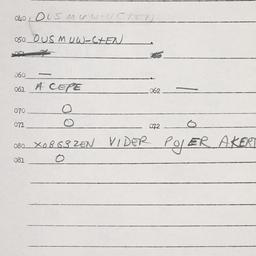 040.
050. OUSMUW-CTEN.
060. —
061. A CEPE 062. —
070. O
071. O 072. O
080. XOBG3ZEN VIDER POJER AKERT
081. O